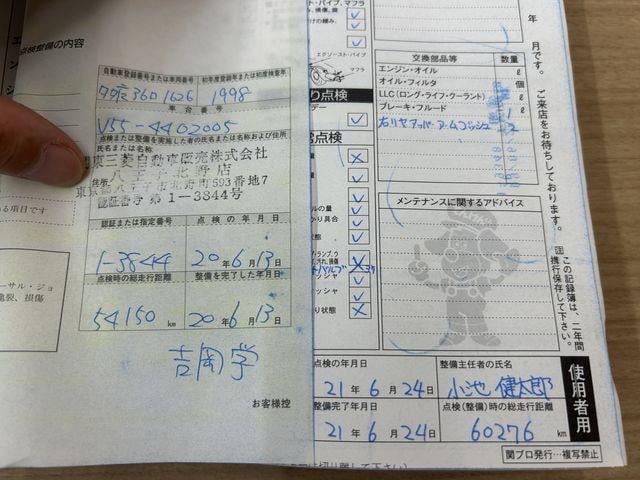 点検整備の内容
自動車登録番号または車両番号
初年度登録年または初度検査年
360 1626
1998
車台番号
V55-4402005
点検または整備を実施した者の氏名または名称および住所
氏名または名称
東三菱自動車販売株式会社
八王子北野店
住所
東京都八王子市北野町593番地7
認証番号 第1-3844号
認証または指定番号
点検の年月日
1-3844
20年6月13日
点検時の総走行距離
整備を完了した年月日
54150 km
20年6月13日
吉岡学
お客様控
る項目です
ーサル・ジョ
亀裂、損傷
ト・パイプ、マフラ
エグゾースト・パイプ
マフラ
り点検
常点検
交換部品等
数量
エンジン・オイル
ℓ
オイル・フィルタ
個
LLC(ロング・ライフ・クーラント)
ℓ
ブレーキ・フルード
ℓ
右リヤアッパーアームブッシュ
メンテナンスに関するアドバイス
年 月です。ご来店をお待ちしております。
注 この記録簿は、二年間携行保存して下さい。
使用者用
点検の年月日
整備主任者の氏名
21年6月24日
小池 健太郎
整備完了年月日
点検(整備)時の総走行距離
21年6月24日
60276 km
関ブロ発行…複写禁止